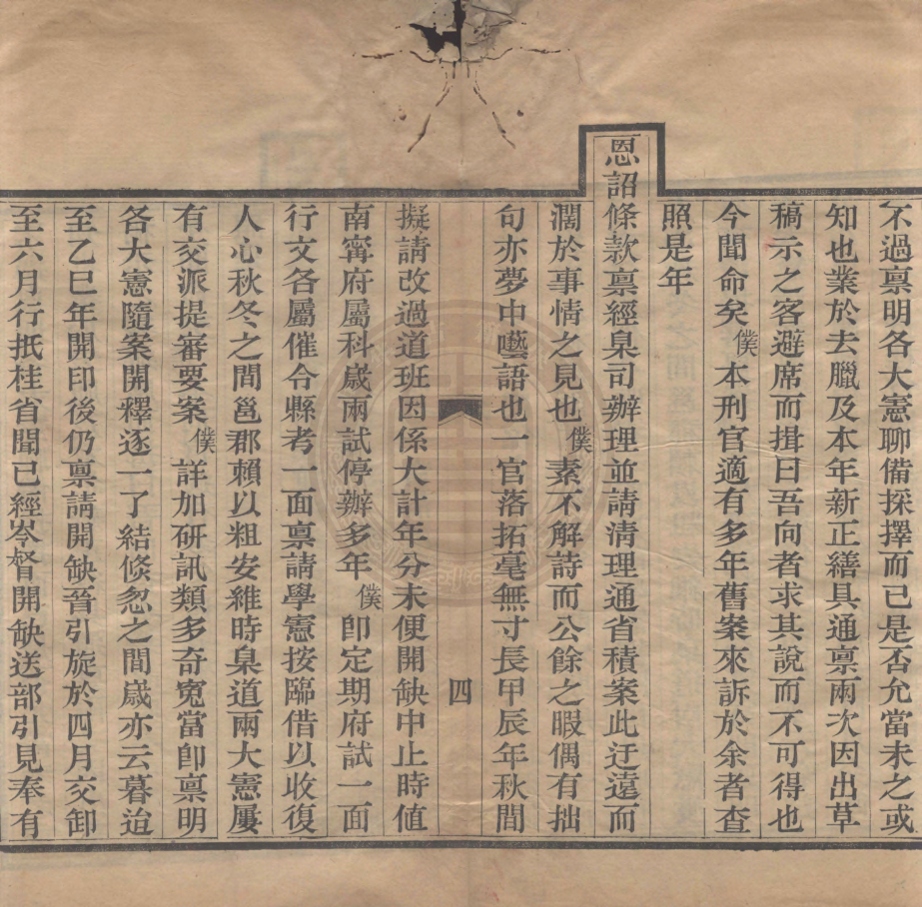 不過禀明各大憲聊備採擇而已是否允當未之或
知也業於去臘及本年新正繕具通禀兩次因出草
稿示之客避席而揖曰吾向者求其說而不可得也
今聞命矣僕本刑官適有多年舊案來訴於余者查
照是年
恩詔條款禀經臬司辦理並請清理通省積案此迂遠而
濶於事情之見也僕素不解詩而公餘之暇偶有拙
句亦夢中囈語也一官落拓毫無寸長甲辰年秋間
四
擬請改過道班因係大計年分未便開缺中止時值
南甯府屬科歲兩試停辦多年僕卽定期府試一面
行文各屬催令縣考一面禀請學憲按臨借以收復
人心秋冬之間邕郡賴以粗安維時臬道兩大憲屢
有交派提審要案僕詳加研訊類多奇寃當卽禀明
各大憲隨案開釋逐一了結倐忽之間歲亦云暮迨
至乙巳年開印後仍禀請開缺晉引旋於四月交卸
至六月行抵桂省聞已經岑督開缺送部引見奉有